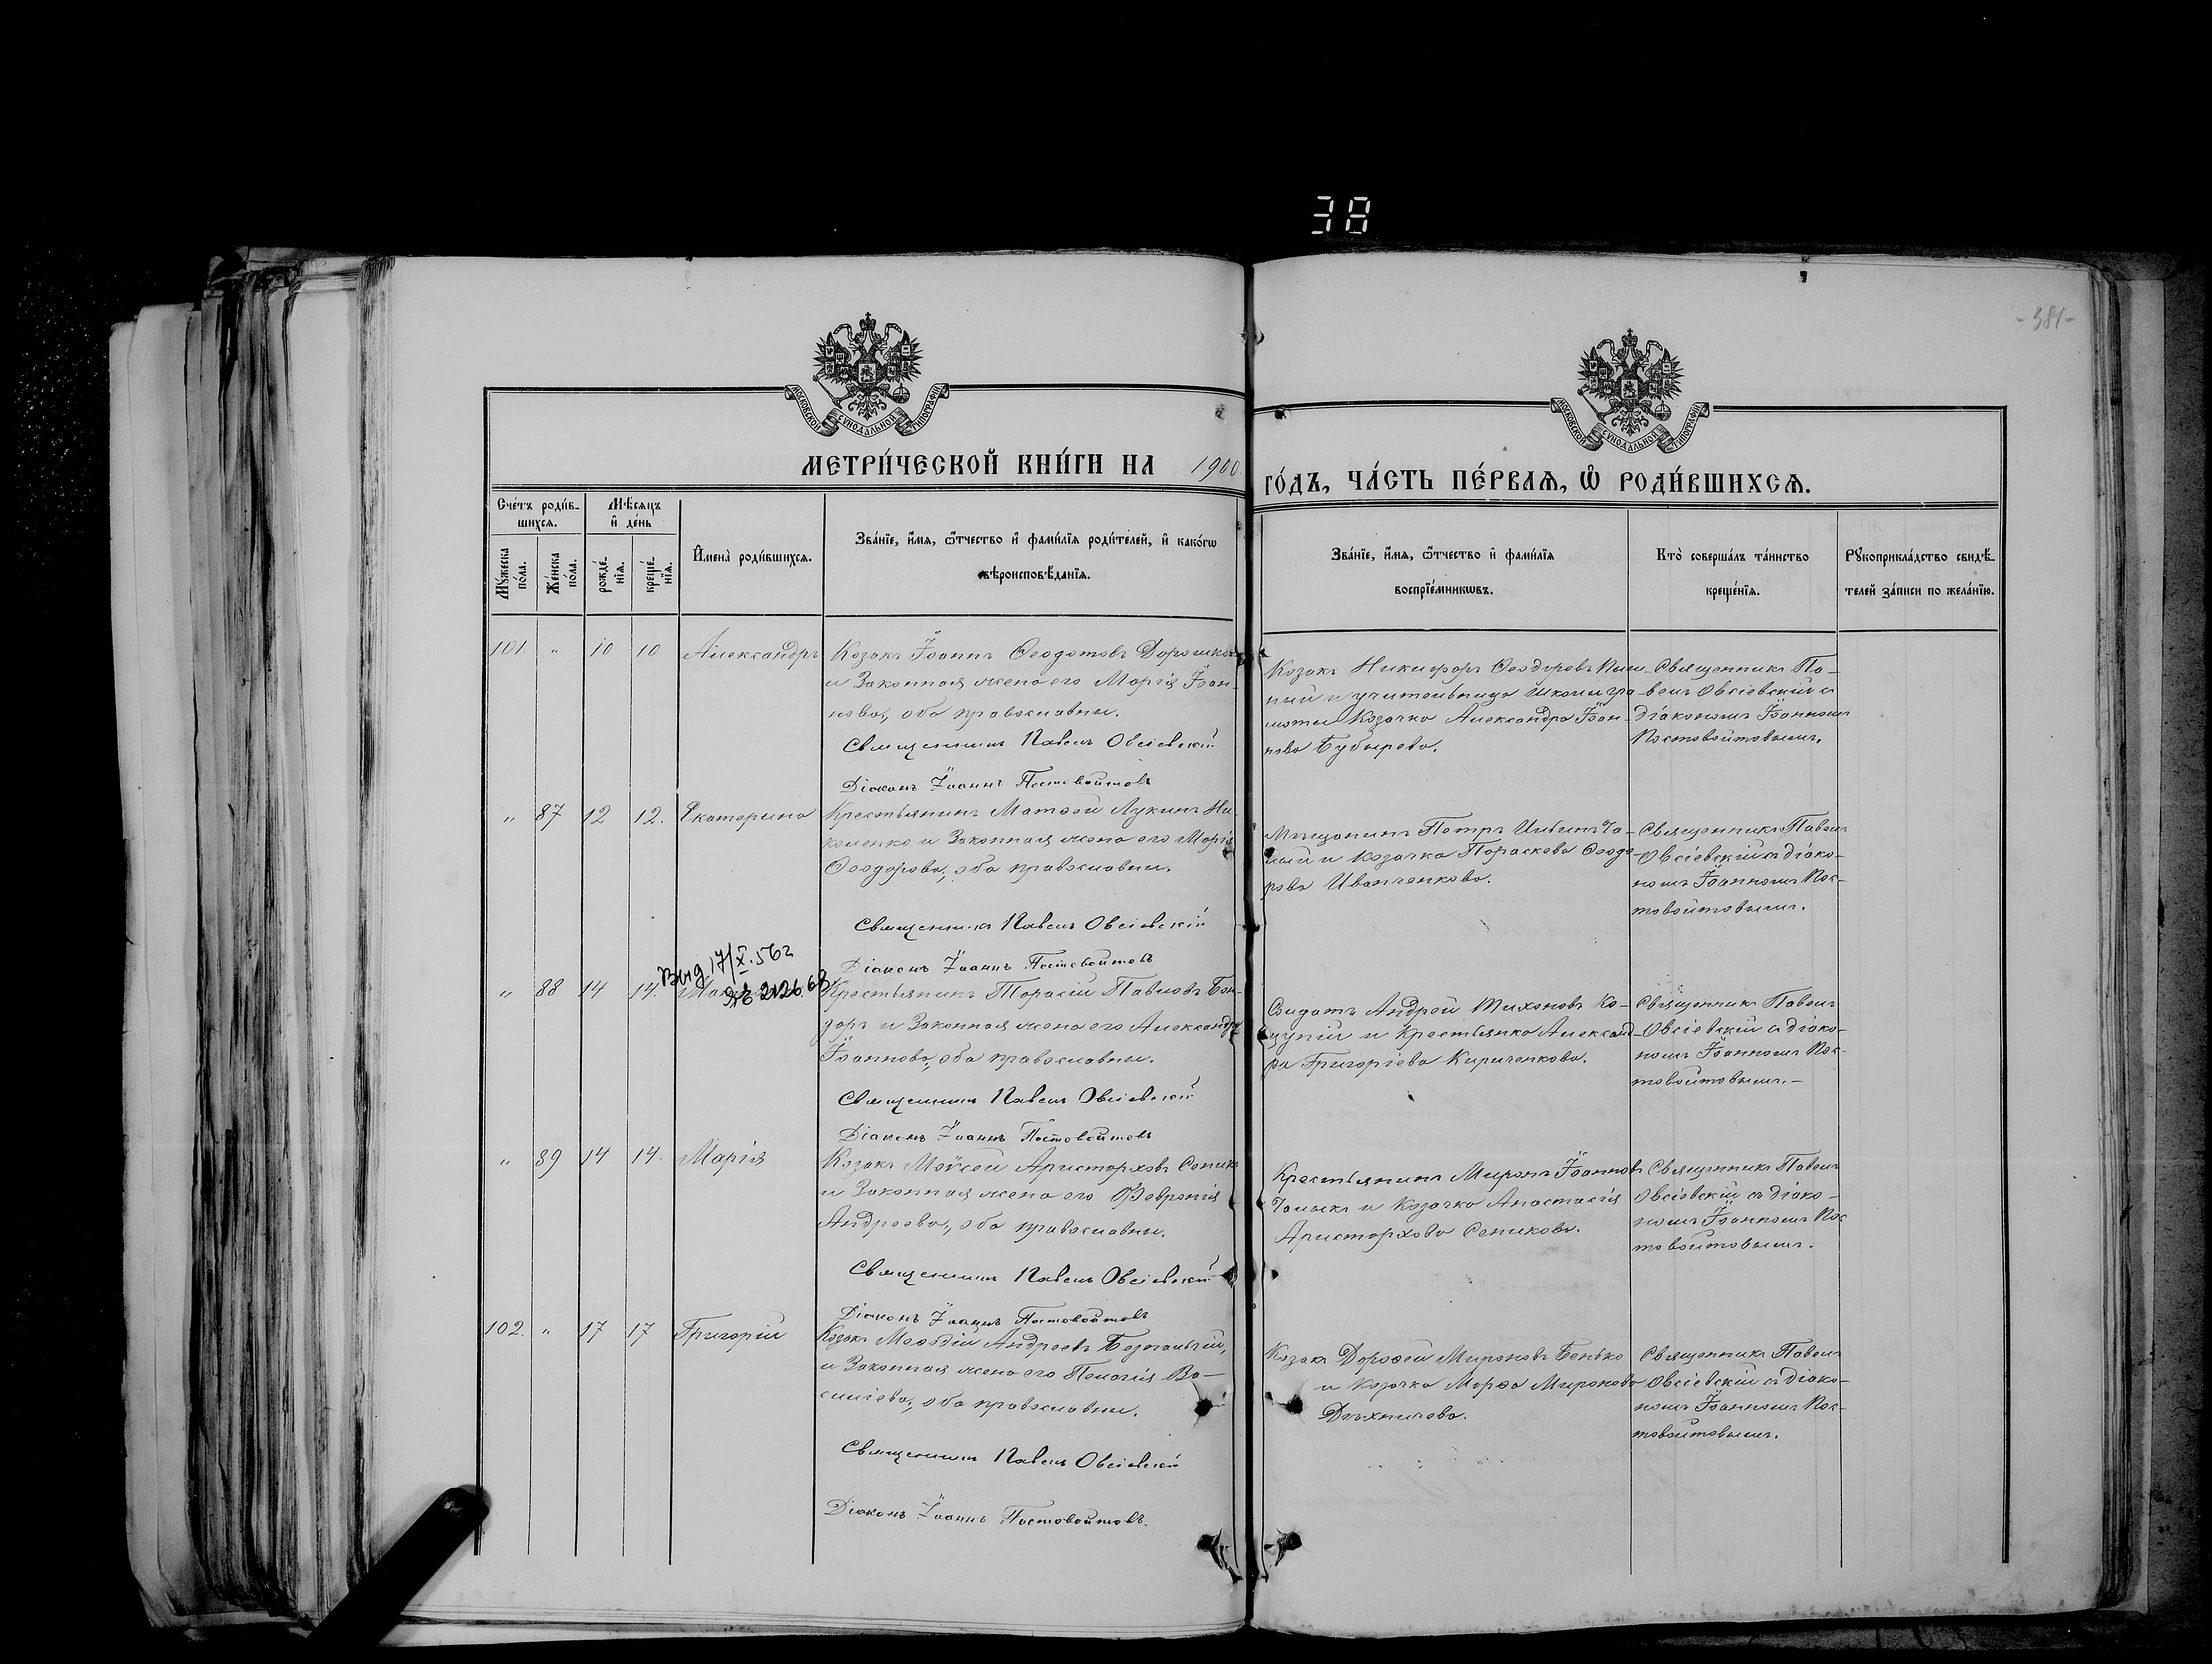 38
-381-
МОСКОВСКОЙ СУНОДАЛЬНОЙ ТИПОГРАФІИ
МОСКОВСКОЙ СУНОДАЛЬНОЙ ТИПОГРАФІИ
МЕТРИ́ЧЕСКОЙ КНИ́ГИ НА 1900
ГО́ДЪ, ЧА́СТЬ ПЕ́РВАѦ, Ѽ РОДИ́ВШИХСѦ.
Сче́тъ роди́в-
шихсѧ.
Мѣ́сѧцъ
и҆ де́нь
Мꙋ́жеска
по́ла.
Же́нска
по́ла.
рожде́-
нїѧ.
креще́-
нїѧ.
И҆мена̀ роди́вшихсѧ.
Зва́нїе, и҆́мѧ, ѻ҆́тчество и҆ фами́лїѧ роди́телей, и҆ како́гѡ
вѣроисповѣ́данїѧ.
Зва́нїе, и҆́мѧ, ѻ҆́тчество и҆ фами́лїѧ
воспрїе́мникѡвъ.
Кто̀ соверша́лъ та́инство
креще́нїѧ.
Рꙋкоприкла́дство свидѣ́-
телей за́писи по жела́нїю.
101 " 10 10 Александръ
Козакъ Іоаннъ Ѳеодотовъ Дорошко
и Законная жена его Марія Іоан-
нова, оба православны.
Священникъ Павелъ Овсіевскій
Діаконъ Іоаннъ Постовойтовъ
Козакъ Никифоръ Ѳеодоровъ
и учительница школы гра-
моты Козачка Александра Іоан-
нова Бубырева.
Священникъ Па-
велъ Овсіевскій съ
діакономъ Іоанномъ
Постовойтовымъ.
" 87 12 12. Екатерина
Крестьянинъ Матѳей Лукинъ Ни-
коненко и Законная жена его Марія
Ѳеодорова, оба православны.
Священникъ Павелъ Овсіевскій
Діаконъ Іоаннъ Постовойтовъ
Мѣщанинъ Петръ
и Козачка Параскева Ѳеодо-
рова Иванченкова.
Священникъ Павелъ
Овсіевскій съ діако-
номъ Іоанномъ Пос-
товойтовымъ.
Выд. 17/X.56г
ЯБ 212668
" 88 14 14.
Крестьянинъ Тарасій Павловъ Бон-
даръ и Законная жена его Александра
Іоаннова, оба православны.
Священникъ Павелъ Овсіевскій
Діаконъ Іоаннъ Постовойтовъ
Солдатъ Андрей Тихоновъ Ко-
цупій и Крестьянка Александ-
ра Григоріева Кириченкова.
Священникъ Павелъ
Овсіевскій съ діако-
номъ Іоанномъ Пос-
товойтовымъ.-
" 89 14 14. Марія
Козакъ Моѵсей Аристарховъ Сеникъ
и Законная жена его Февронія
Андреева, оба православны.
Священникъ Павелъ Овсіевскій
Діаконъ Іоаннъ Постовойтовъ
Крестьянинъ Миронъ Іоанновъ
и Козачка Анастасія
Аристархова Сеникова.
Священникъ Павелъ
Овсіевскій съ діако-
номъ Іоанномъ Пос
товойтовымъ.
102. " 17 17 Григорій
Козакъ Меѳодій Андреевъ
и Законная жена его Пелагія Ва-
силіева, оба православны.
Священникъ Павелъ Овсіевскій
Діаконъ Іоаннъ Постовойтовъ.
Козакъ Дороѳей Мироновъ Бенько
и Козачка Марѳа Миронова
Священникъ Павелъ
Овсіевскій съ діако-
номъ Іоанномъ Пос-
товойтовымъ.